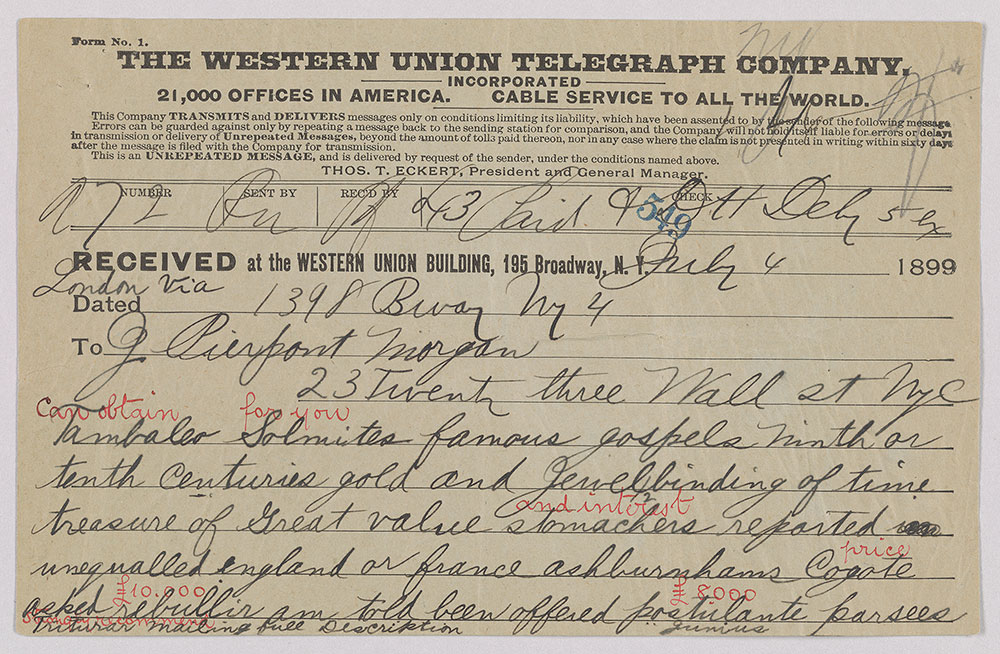 Form No. 1.
THE WESTERN UNION TELEGRAPH COMPANY.
INCORPORATED
21,000 OFFICES IN AMERICA. CABLE SERVICE TO ALL THE WORLD.
This Company TRANSMITS and DELIVERS messages only on conditions limiting its liability, which have been assented to by the sender of the following message
Errors can be guarded against only by repeating a message back to the sending station for comparison, and the Company will not hold itself liable for errors or delays
in transmission or delivery of Unrepeated Messages, beyond the amount of tolls paid thereon, nor in any case where the claim is not presented in writing within sixty days
after the message is filed with the Company for transmission.
This is an UNREPEATED MESSAGE, and is delivered by request of the sender, under the conditions named above.
THOS. T. ECKERT, President and General Manager.
NUMBER SENT BY REC'D BY CHECK
43 Paid 549 DH Dely
RECEIVED at the WESTERN UNION BUILDING, 195 Broadway, N. Y. July 4 1899
London Via
Dated 1398 Bway Ny 4
To J Pierpont Morgan
23 Twenty three Wall st NyC
can obtain for you
Tambaleo Solmites famous gospels ninth or
tenth centuries gold and Jewelbinding of time
and interest
treasure of Great value stomachers reported
price
unequalled england or france ashburnhams Cogote
£10.000 £8000
asked rebullir am told been offered postulante parsees
Triturar mailing full Description Junius